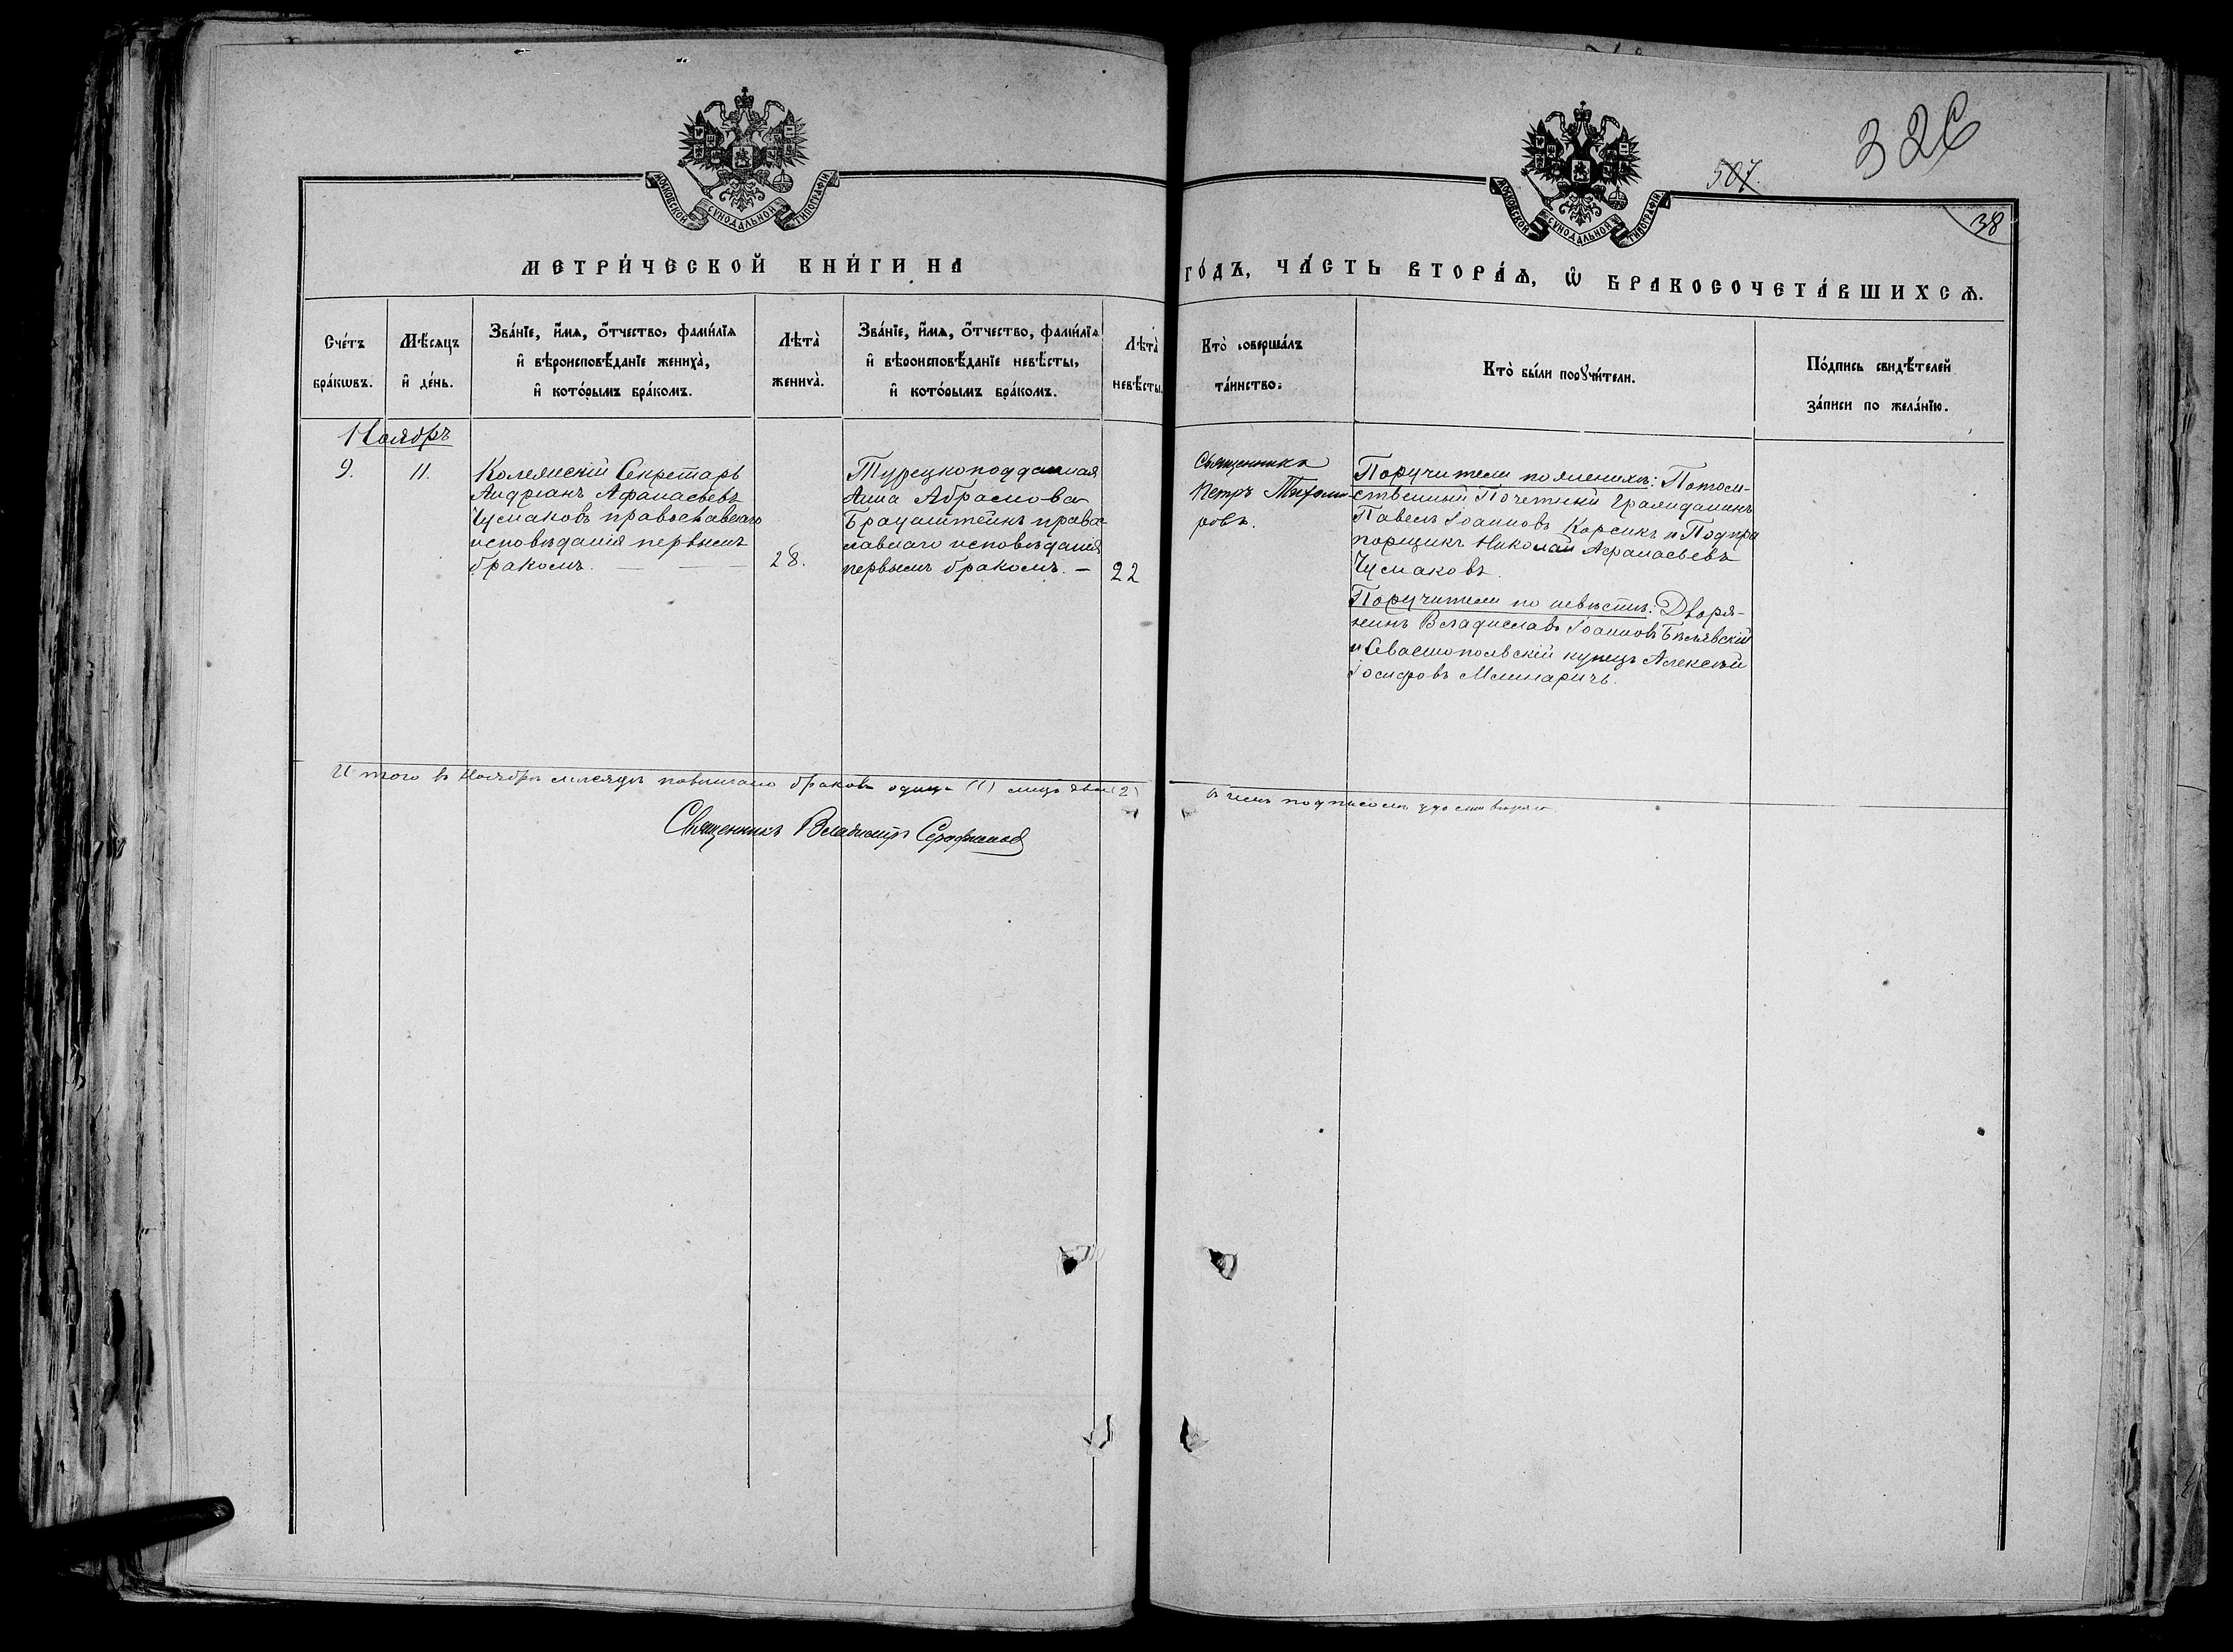 326
507.
38
МОСКОВСКОЙ СѴНОДАЛЬНОЙ ТИПОГРАФІИ
МОСКОВСКОЙ СѴНОДАЛЬНОЙ ТИПОГРАФІИ
МЕТРИ́ЧЕСКОЙ КНИ́ГИ НА
ГО́ДЪ, ЧА́СТЬ ВТОРА́Ѧ, Ѡ҆ БРАКОСОЧЕТА́ВШИХСѦ.
Сче́тъ
бра́кѡвъ.
Мѣ́сѧцъ
и҆ де́нь.
Зва́нїе, и҆́мѧ, ѻ҆́тчество, фамѝлїѧ
и҆ вѣроисповѣ́данїе жениха̀,
и҆ кото́рымъ бра́комъ.
Лѣта̀
жениха̀.
Зва́нїе, и҆́мѧ, ѻ҆́тчество, фамѝлїѧ
и҆ вѣроисповѣ́данїе невѣ́сты,
и҆ кото́рымъ бра́комъ.
Лѣта̀
невѣ́сты.
Кто̀ соверша́лъ
та́инство:
Кто̀ бы́ли порꙋчи́тели.
По́дпись свидѣ́телей
за́писи по жела́нїю.
Ноябрь
9.
11.
Колежскій Секретарь
Андріанъ Афанасьевъ
Чумаковъ православнаго
исповѣданія первымъ
бракомъ.
28.
Турецкоподданная
Анна Абрамова
Браунштейнъ право-
славнаго исповѣданія
первымъ бракомъ. —
22
Священникъ
Петръ Тихоми-
ровъ.
Поручители по женихѣ: Потом-
ственный Почетный Гражданинъ
Павелъ Іоанновъ Корсикъ и Подпра
порщикъ Николай Афанасьевъ
Чумаковъ.
Поручители по невѣстѣ: Дворя-
нинъ Владиславъ Іоанновъ Бѣлявскій
и Севастопольскій купецъ Алексѣй
Іосифовъ Млинаричъ.
Итого въ Ноябрѣ мѣсяцѣ повѣнчано браковъ одинъ (1) лицъ два (2)
въ чемъ подписомъ удостовѣряю
Священникъ Владиміръ Серафимовъ